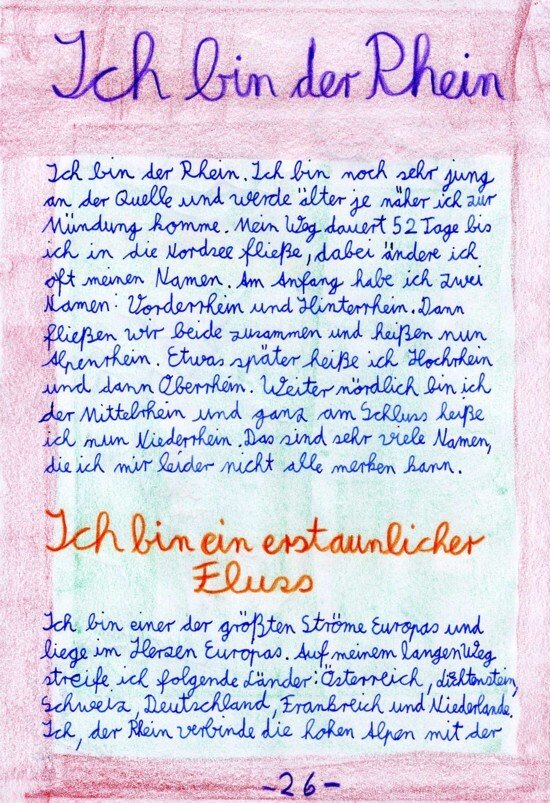 Ich bin der Rhein
Ich bin der Rhein. Ich bin noch sehr jung
an der Quelle und werde älter je näher ich zur
Mündung komme. Mein Weg dauert 52 Tage bis
ich in die Nordsee fließe, dabei ändere ich
oft meinen Namen. Am Anfang habe ich zwei
Namen: Vorderrhein und Hinterrhein. Dann
fließen wir beide zusammen und heißen nun
Alpenrhein. Etwas später heiße ich Hochrhein
und dann Oberrhein. Weiter nördlich bin ich
der Mittelrhein und ganz am Schluss heiße
ich nun Niederrhein. Das sind sehr viele Namen,
die ich mir leider nicht alle merken kann.
Ich bin ein erstaunlicher
Fluss
Ich bin einer der größten Ströme Europas und
liege im Herzen Europas. Auf meinem langen Weg
streife ich folgende Länder: Österreich, Lichtenstein,
Schweiz, Deutschland, Frankreich und Niederlande.
Ich, der Rhein verbinde die hohen Alpen mit der
-26-